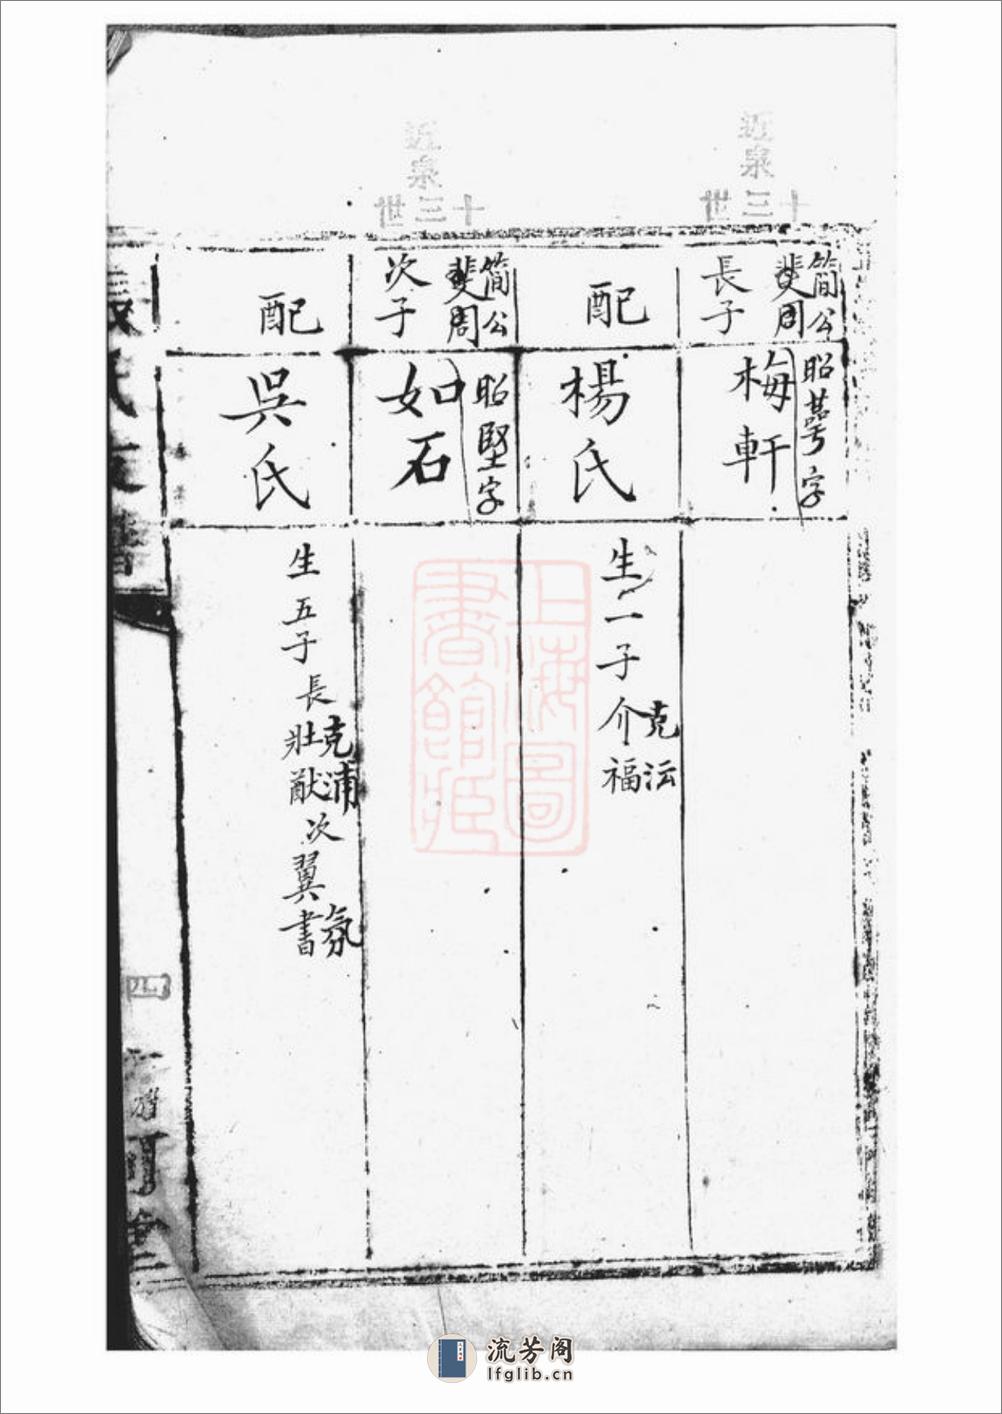 近泉
十三世
簡公
斐周
長子
昭萼字
梅軒
配
楊氏
生一子
克沄
介福
近泉
十三世
簡公
斐周
次子
昭堅字
如石
配
吳氏
生五子長
克浦
壯猷
次
翼書
氛
氏支譜
四
上海圖
書館藏
流芳阁
lfglib.cn